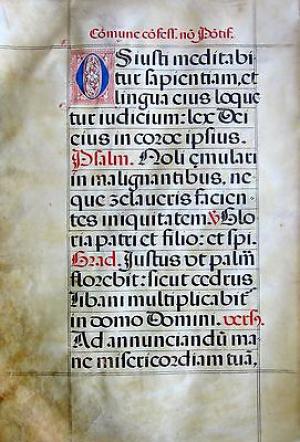 Cõmune cõfess. nõ Põtif.
Os iusti meditabi
tur sapientiam, et
lingua eius loque
tur iudicium: lex Dei
eius in corde ipsius.
Psalm. Noli ęmulari
in malignantibus, ne
que zelaveris facien
tes iniquitatem ℣ Glo
ria patri et filio: et spi.
Grad. Justus vt palm̃
florebit: sicut cedrus
Libani multiplicabit᷑
in domo Domini. vers.
Ad annunciandũ ma
ne misericordiam tuã,